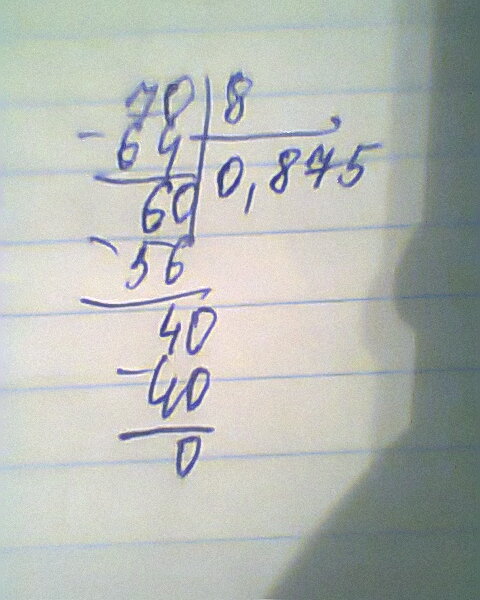 70 8
- 64 0,875
60
- 56
40
- 40
0